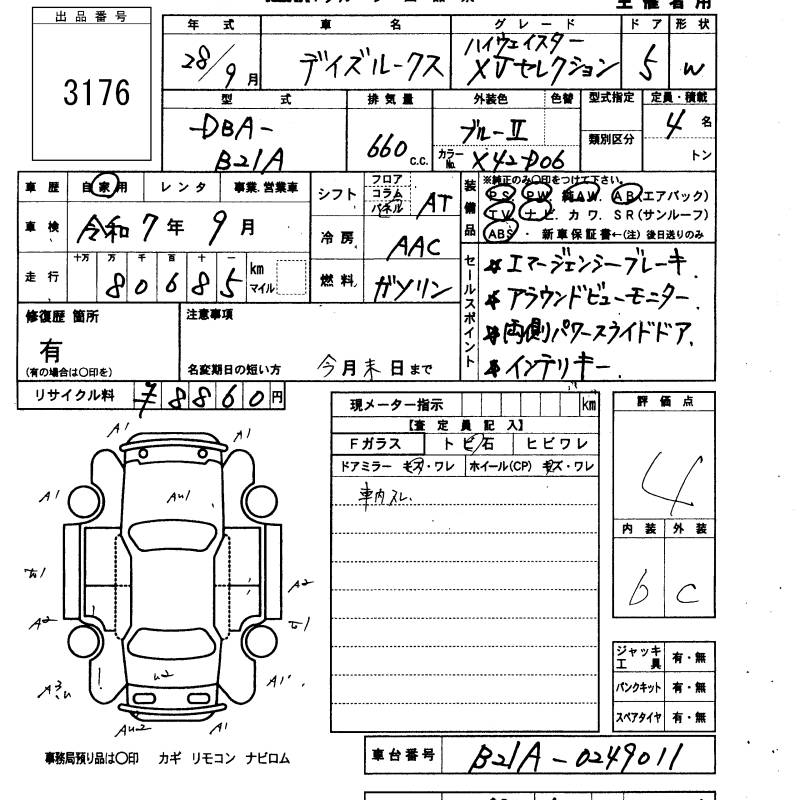 出品番号
3176
年式 車名 グレード ドア 形状
28/9月 デイズルークス ハイウェイスター XVセレクション 5 W
型式 排気量 外装色 色替 型式指定 定員・積載
DBA-B21A 660c.c. ブルーII カラーNo. X42-D06 類別区分 4名 トン
車歴 自家用 レンタ 事業、営業車
シフト フロア コラム パネル AT
車検 令和7年9月
冷房 AAC
走行 十万 万 千 百 十 一 80685 km マイル
燃料 ガソリン
装備品 ※純正のみ〇印をつけて下さい。
PS. PW. 純AW. AB(エアバック)
TV. ナビ. カワ. SR(サンルーフ)
ABS・新車保証書←(注) 後日送りのみ
修復歴 箇所
有
(有の場合は〇印を)
注意事項
名変期日の短い方 今月末日まで
セールスポイント
★エマージェンシーブレーキ
★アラウンドビューモニター.
★両側パワースライドドア.
★インテリキー.
リサイクル料 ¥8860円
現メーター指示 km
【査定員記入】
Fガラス トビ石 ヒビワレ
ドアミラー キズ・ワレ ホイール(CP) キズ・ワレ
車内スレ.
評価点
4
内装 外装
b c
A1 A1
A1 AU1 A1
A2
A2
U2
A1
AU2 A1
ジャッキ工具 有・無
パンクキット 有・無
スペアタイヤ 有・無
事務局預り品は〇印 カギ リモコン ナビロム
車台番号 B21A-0249011